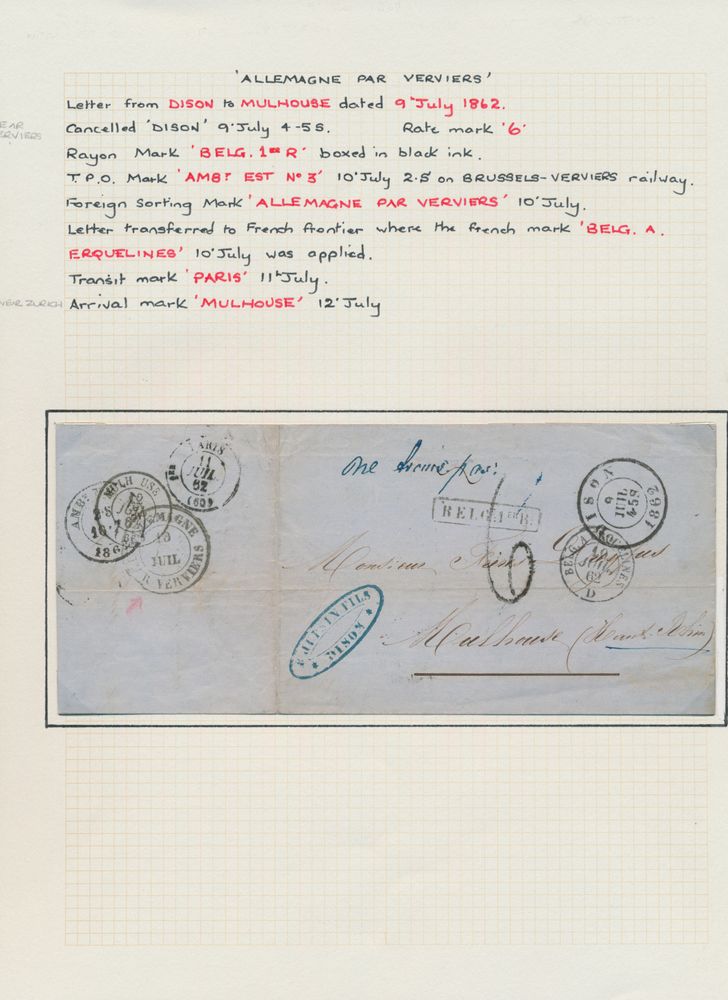 'ALLEMAGNE PAR VERVIERS'
Letter from DISON to MULHOUSE dated 9' July 1862.
Cancelled 'DISON' 9' July 4-5 S. Rate mark '6'
Rayon Mark 'BELG. 1ER R' boxed in black ink.
T.P.O. Mark 'AMBT EST No 3' 10' July 2.S on BRUSSELS-VERVIERS railway.
Foreign Sorting Mark 'ALLEMAGNE PAR VERVIERS' 10' July.
Letter transferred to French frontier where the french mark 'BELG. A.
ERQUELINES' 10' July was applied.
Transit mark 'PARIS' 11' July.
NEAR ZURICH Arrival mark 'MULHOUSE' 12' July
PARIS
11
JUIL
62
(60)
BELG. 1ER R.
6
DISON
9
JUIL
4-5 S
1862
BELG. A ERQUELINES
10
JUIL
62
D
AMB
186
10
JUIL
PAR VERVIERS
Monsieur
Mulhouse (Haut-Rhin)
FILS
DISON